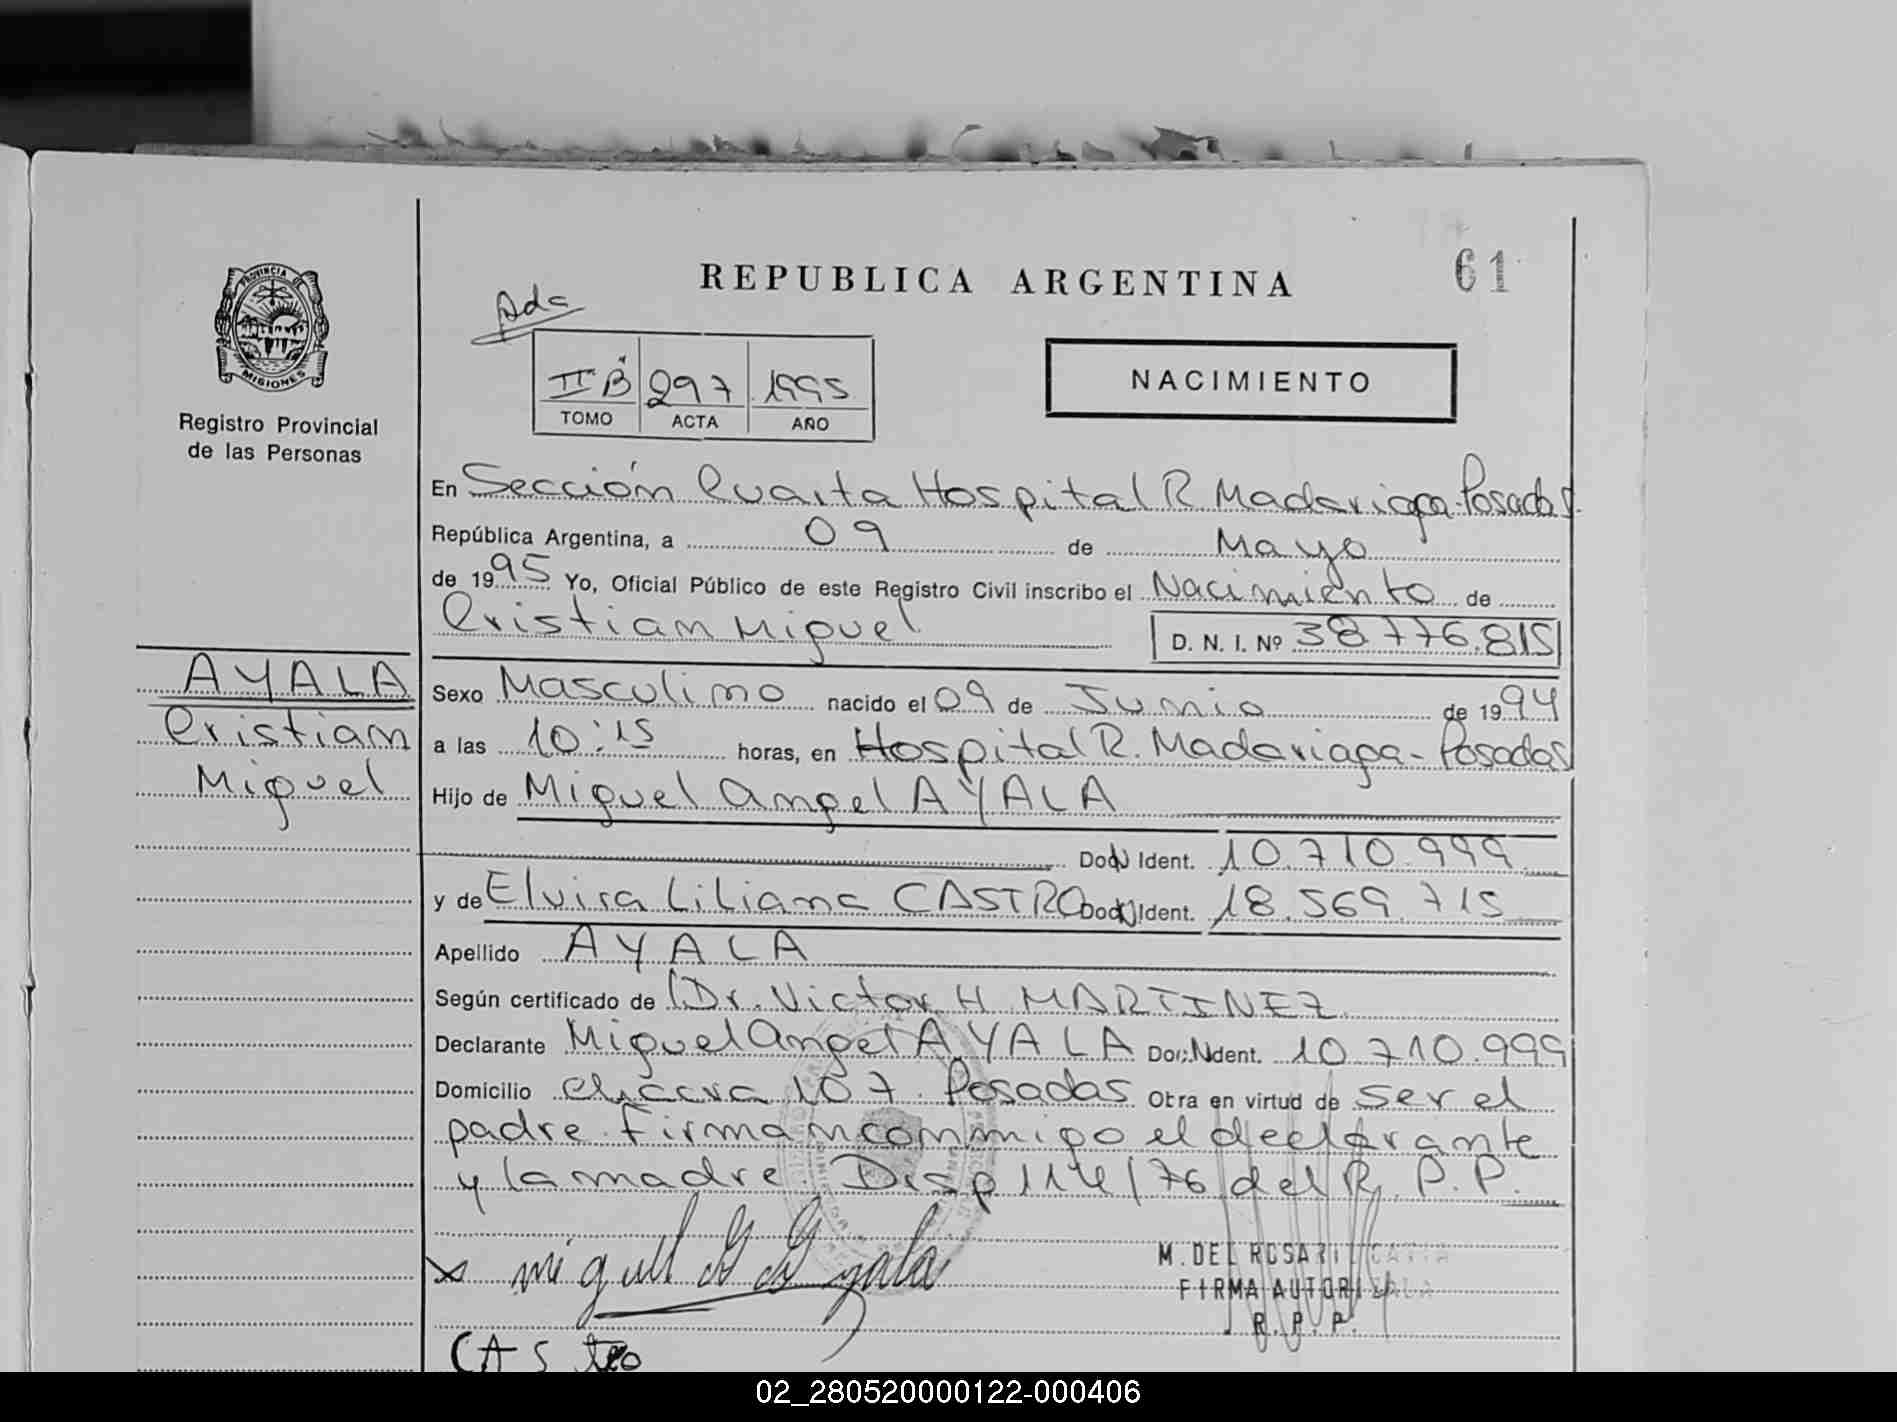 REPUBLICA ARGENTINA
61
Ada
PROVINCIA DE
MISIONES
Registro Provincial
de las Personas
II B 297 1995
TOMO ACTA AÑO
NACIMIENTO
En Sección Cuarta Hospital R Madariaga-Posadas.
República Argentina, a 09 de Mayo
de 1995 Yo, Oficial Público de este Registro Civil inscribo el Nacimiento de
Cristian Miguel
D. N. I. Nº 38.776.815
AYALA
Cristian
Miguel
Sexo Masculino nacido el 09 de Junio de 1994
a las 10:15 horas, en Hospital R. Madariaga-Posadas
Hijo de Miguel Angel AYALA
Doc. Ident. 10.710.999
y de Elvira Liliana CASTRO Doc. Ident. 18.569.715
Apellido AYALA
Según certificado de Dr. Victor H MARTINEZ
Declarante Miguel Angel AYALA Doc. Ident. 10.710.999
Domicilio chacra 107. Posadas Otra en virtud de ser el
padre. Firman conmigo el declarante
y la madre. Disp 114/76 del R. P. P.
miguel A Ayala
M. DEL ROSARIO
FIRMA AUTORIZADA
R. P. P.
CAStro
02_280520000122-000406